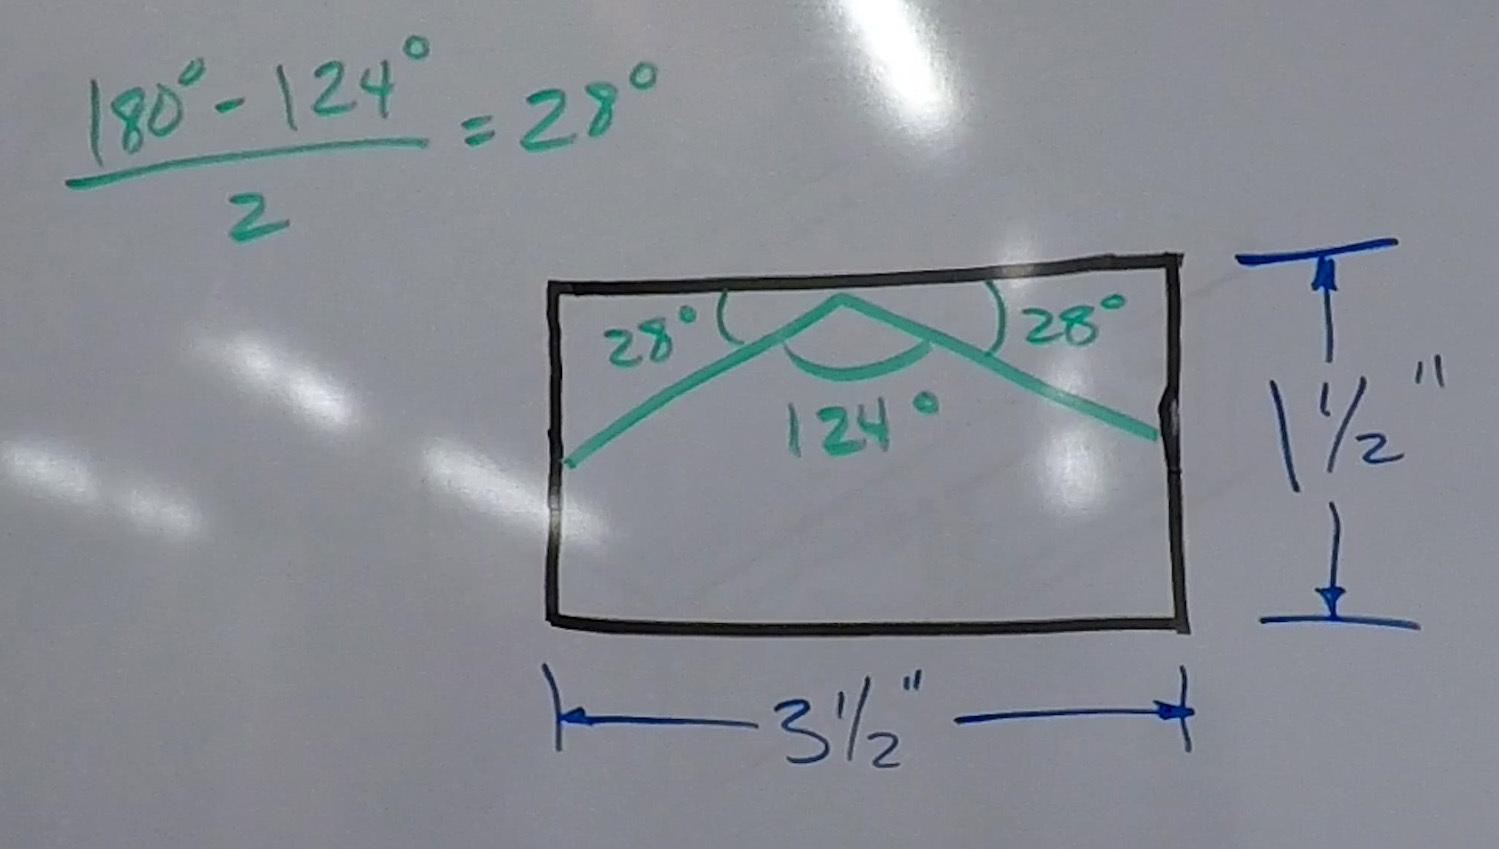 180° - 124° = 28°
2
28°
28°
124°
1 1/2"
3 1/2"